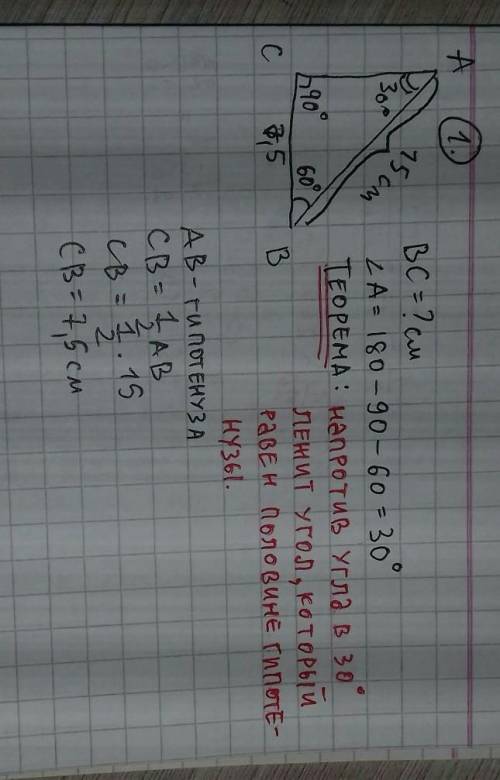 1.
A
30°
15 см
90°
60°
C
7,5
B
BC = ? см
∠A = 180 - 90 - 60 = 30°
ТЕОРЕМА: НАПРОТИВ УГЛА В 30°
ЛЕЖИТ УГОЛ, КОТОРЫЙ
РАВЕН ПОЛОВИНЕ ГИПОТЕ-
НУЗЫ.
AB - ГИПОТЕНУЗА
CB = 1/2 AB
CB = 1/2 · 15
CB = 7,5 см